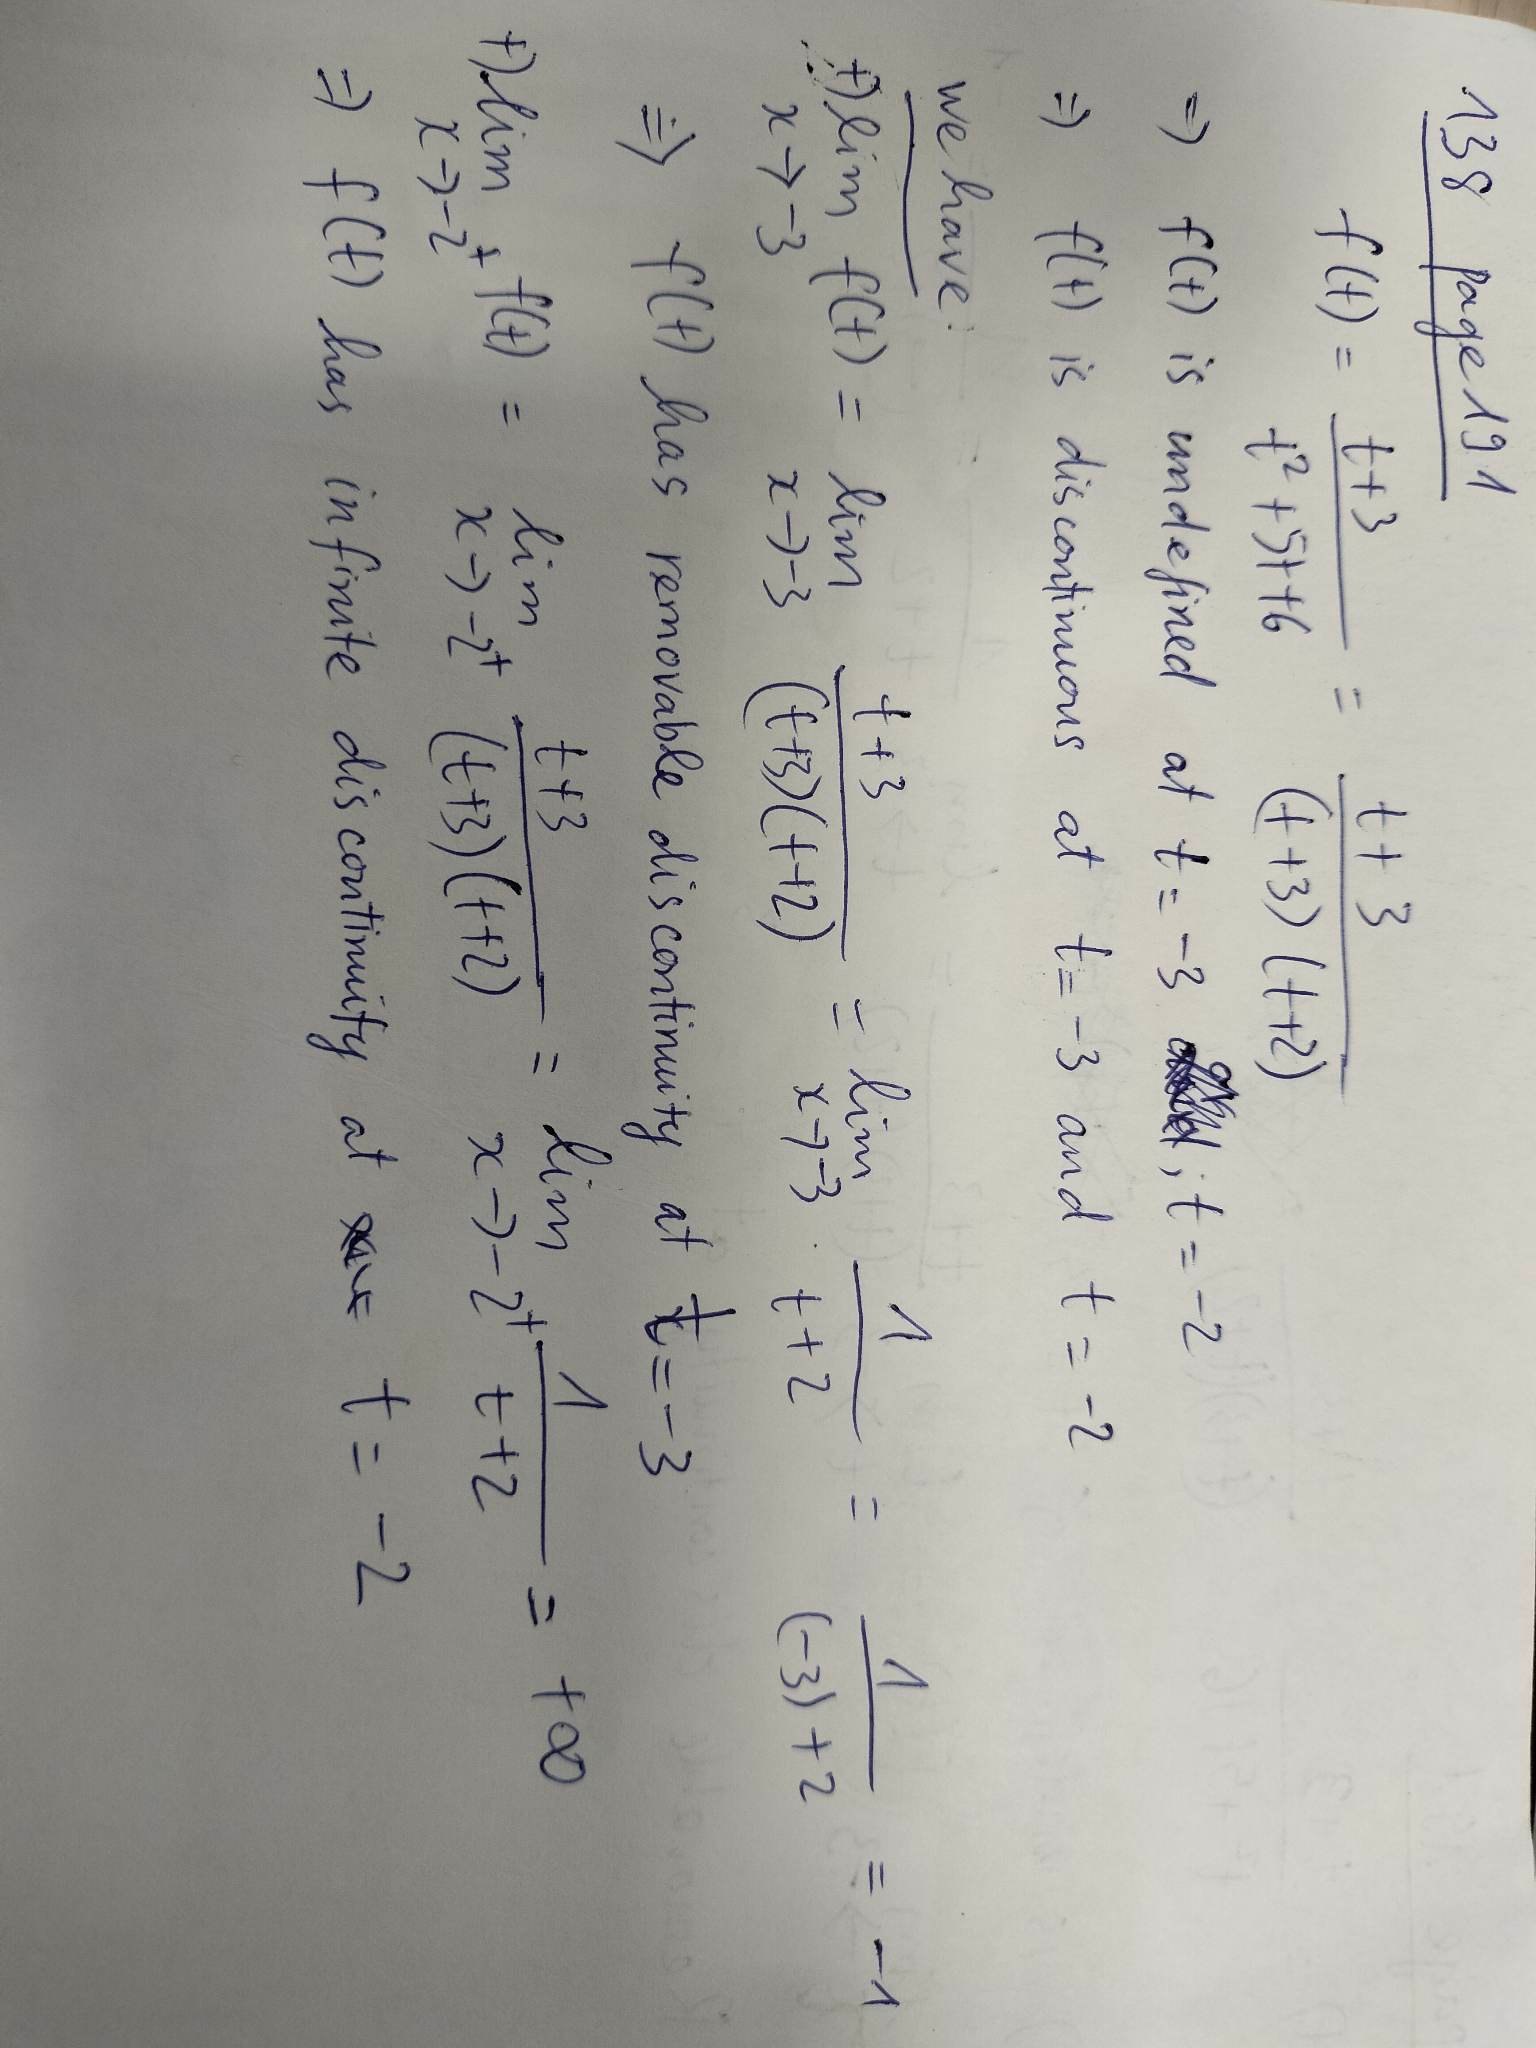 138 page 191
f(t) = t+3 / t² + 5t+6 = t+3 / (t+3)(t+2)
=> f(t) is undefined at t = -3 ; t = -2
=> f(t) is discontinuous at t = -3 and t = -2
we have:
+) lim x→-3 f(t) = lim x→-3 t+3 / (t+3)(t+2) = lim x→-3 1 / t+2 = 1 / (-3)+2 = -1
=> f(t) has removable discontinuity at t = -3
+) lim x→-2⁺ f(t) = lim x→-2⁺ t+3 / (t+3)(t+2) = lim x→-2⁺ 1 / t+2 = +∞
=> f(t) has infinite discontinuity at t = -2